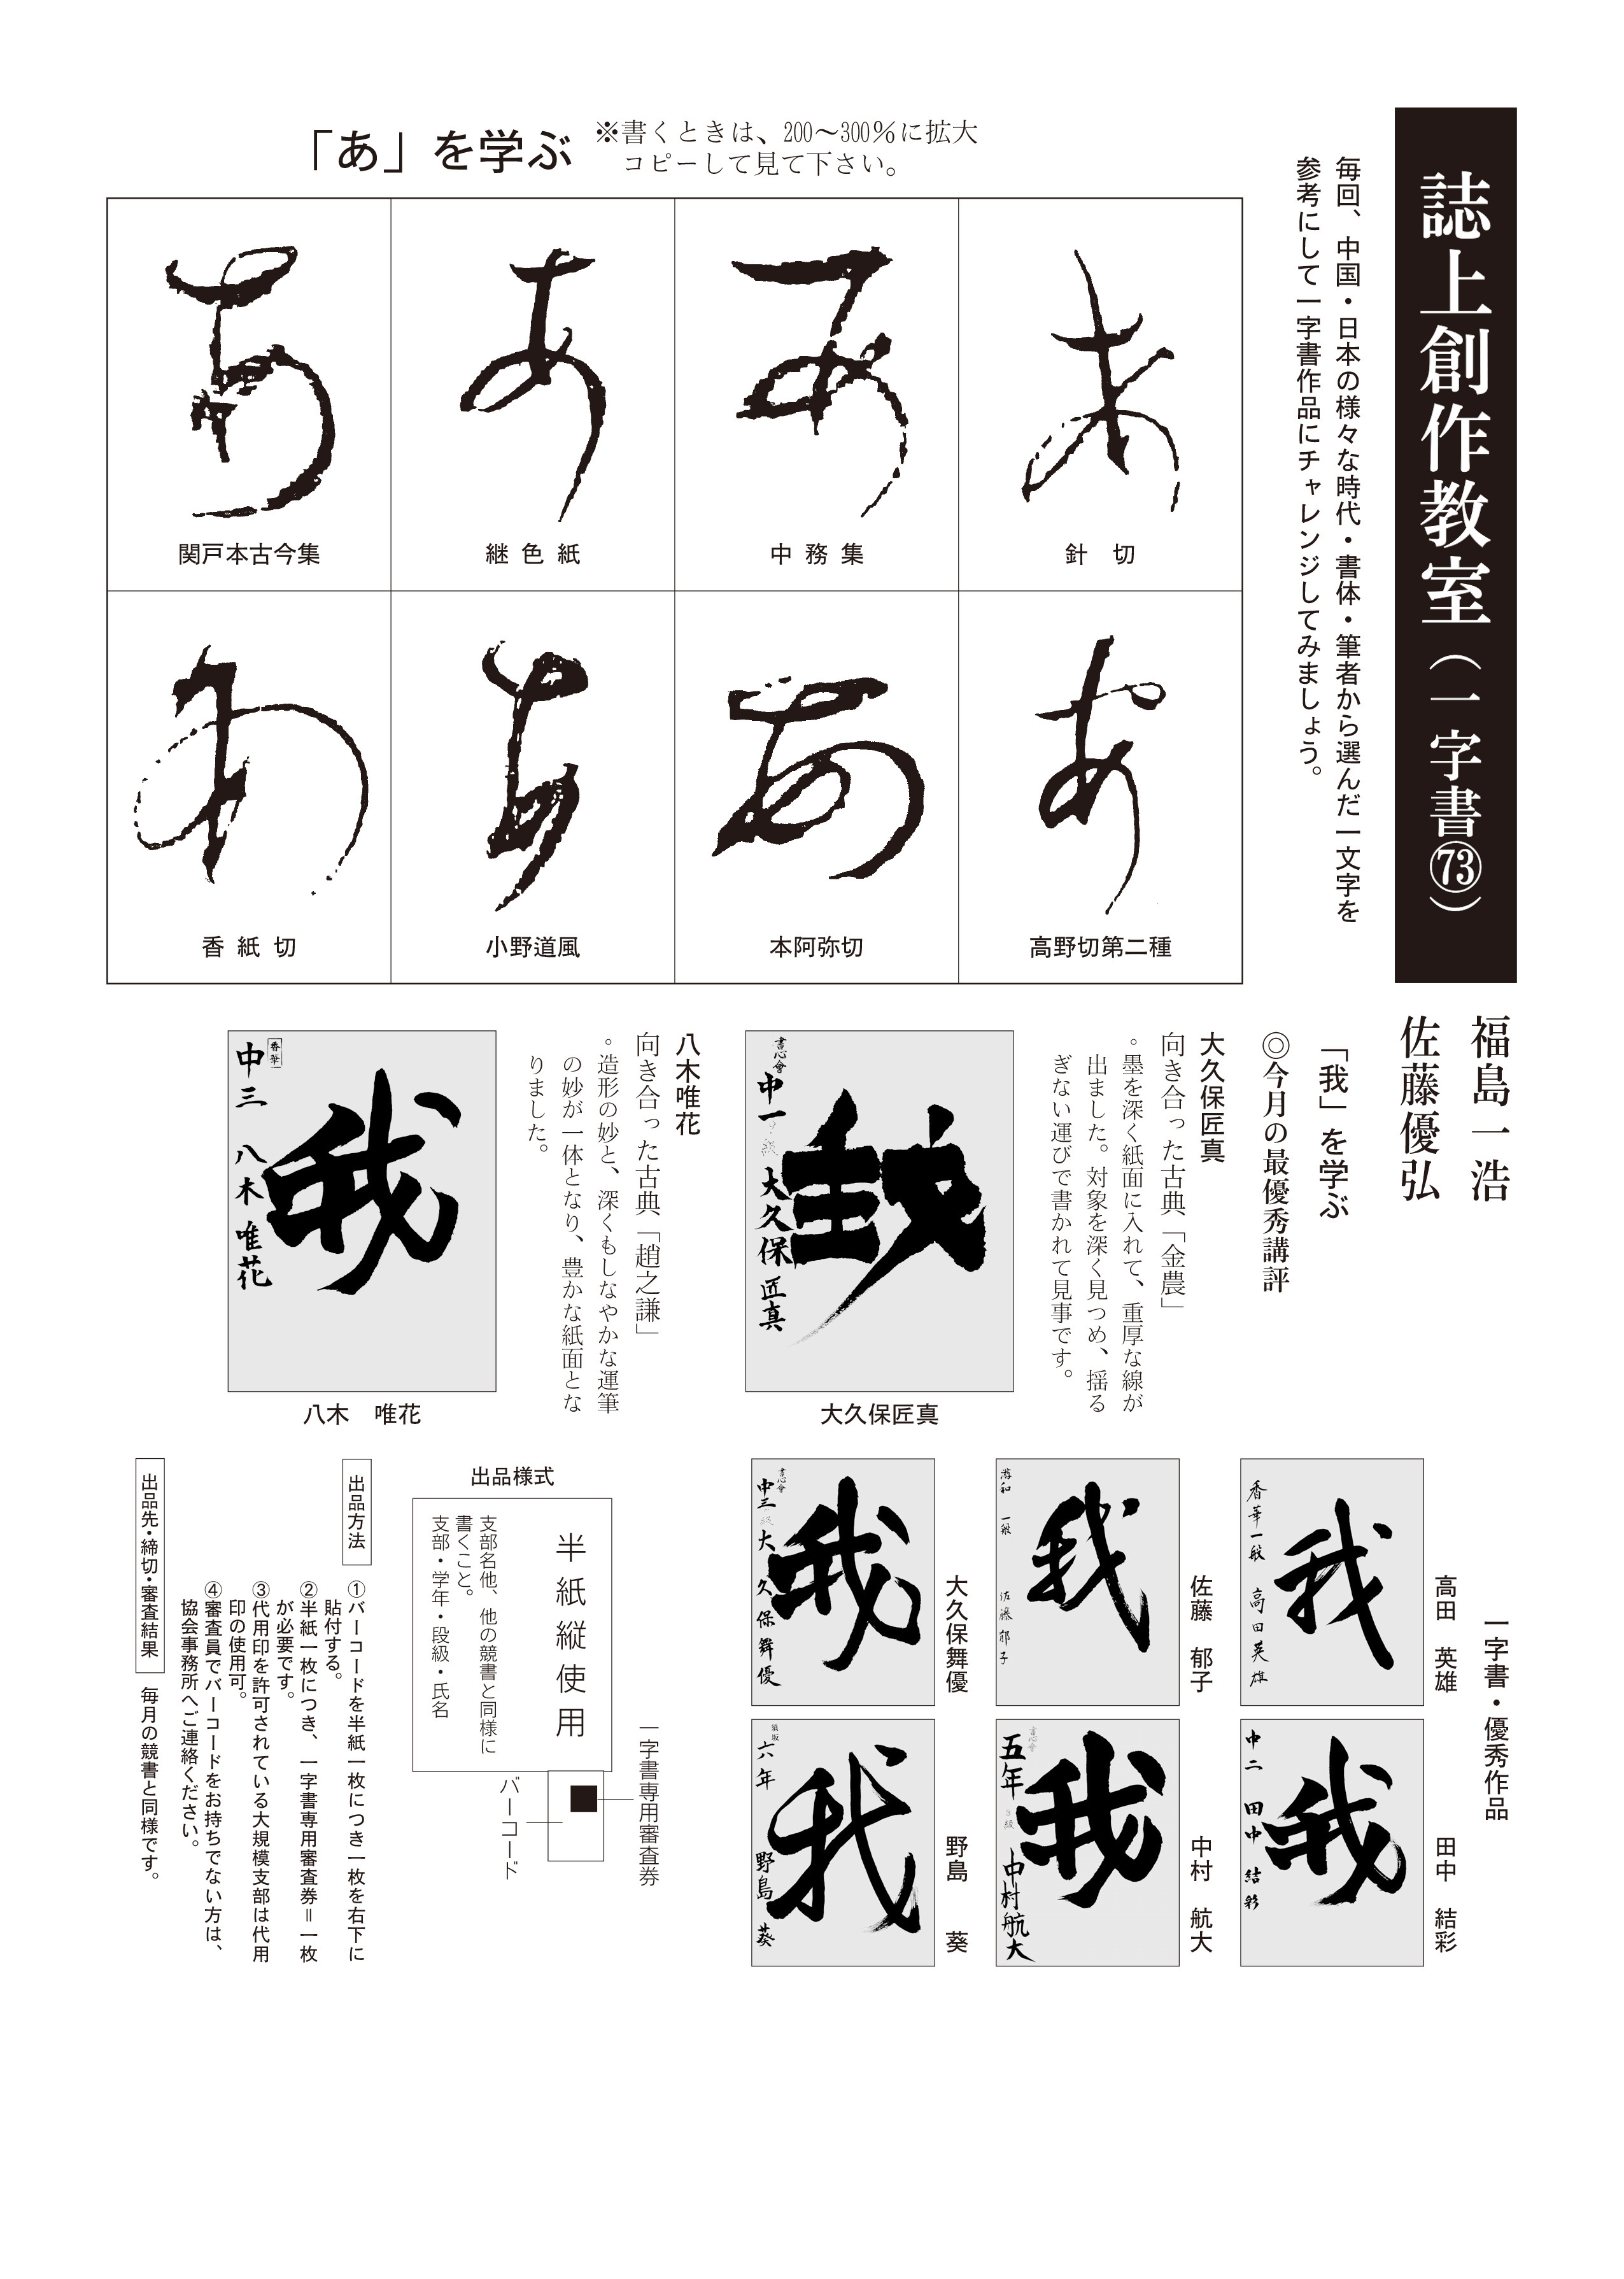 誌上創作教室（一字書73）
福島一浩
佐藤優弘
毎回、中国・日本の様々な時代・書体・筆者から選んだ一文字を
参考にして一字書作品にチャレンジしてみましょう。
「あ」を学ぶ
※書くときは、200〜300％に拡大
コピーして見て下さい。
あ
針　切
あ
中務集
あ
継色紙
あ
関戸本古今集
あ
高野切第二種
あ
本阿弥切
あ
小野道風
あ
香紙切
「我」を学ぶ
◎今月の最優秀講評
大久保匠真
向き合った古典「金農」
。墨を深く紙面に入れて、重厚な線が
出ました。対象を深く見つめ、揺る
ぎない運びで書かれて見事です。
我
書心會
中一
大久保匠真
大久保匠真
八木唯花
向き合った古典「趙之謙」
。造形の妙と、深くもしなやかな運筆
の妙が一体となり、豊かな紙面とな
りました。
我
香華
中三　八木唯花
八木　唯花
一字書・優秀作品
高田　英雄
我
香華一般　高田英雄
田中　結彩
我
中二　田中結彩
佐藤　郁子
我
一般　佐藤郁子
中村　航大
我
書心會
五年　中村航大
大久保舞優
我
書心會
中三　大久保舞優
野島　葵
我
須坂
六年　野島葵
出品様式
半紙縦使用
支部名他、他の競書と同様に
書くこと。
支部・学年・段級・氏名
一字書専用審査券
バーコード
出品方法
①バーコードを半紙一枚につき一枚を右下に
貼付する。
②半紙一枚につき、一字書専用審査券＝一枚
が必要です。
③代用印を許可されている大規模支部は代用
印の使用可。
④審査員でバーコードをお持ちでない方は、
協会事務所へご連絡ください。
出品先・締切・審査結果
毎月の競書と同様です。